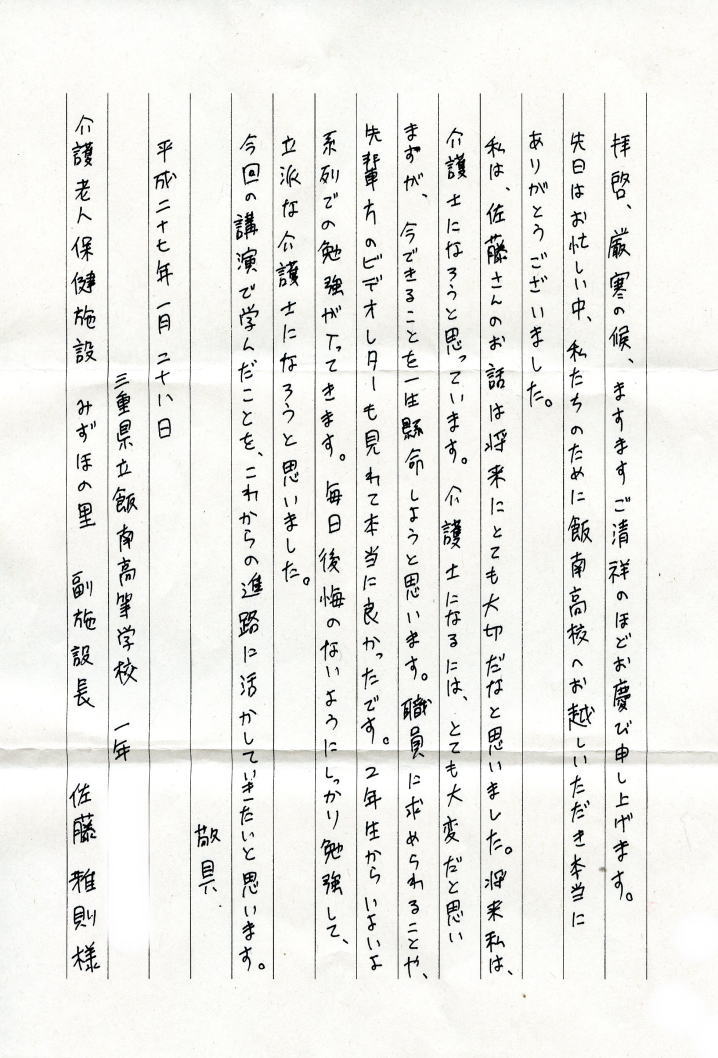 拝啓、厳寒の候、ますますご清祥のほどお慶び申し上げます。
先日はお忙しい中、私たちのために飯南高校へお越しいただき本当に
ありがとうございました。
私は、佐藤さんのお話は将来にとても大切だなと思いました。将来私は、
介護士になろうと思っています。介護士になるには、とても大変だと思い
ますが、今できることを一生懸命しようと思います。職員に求められることや、
先輩方のビデオレターも見れて本当に良かったです。2年生からいよいよ
系列での勉強が入ってきます。毎日後悔のないようにしっかり勉強して、
立派な介護士になろうと思いました。
今回の講演で学んだことを、これからの進路に活かしていきたいと思います。
敬具
平成二十七年一月二十八日
三重県立飯南高等学校 一年
介護老人保健施設 みずほの里 副施設長 佐藤雅則様